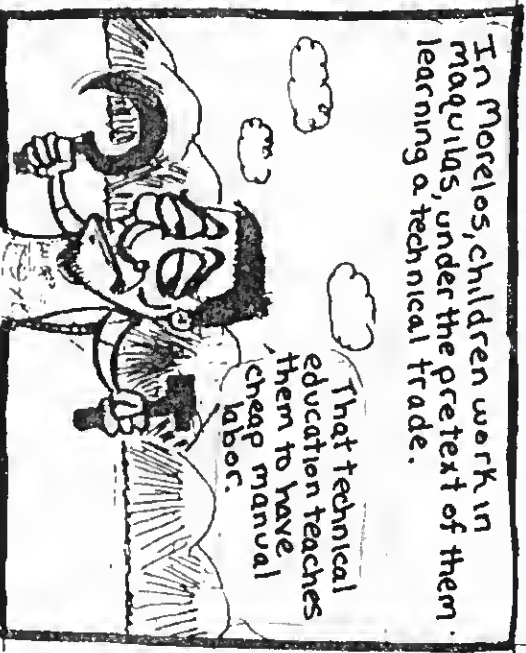 In Morelos, children work in
maquilas, under the pretext of them
learning a technical trade.
That technical
education teaches
them to have
cheap manual
labor.